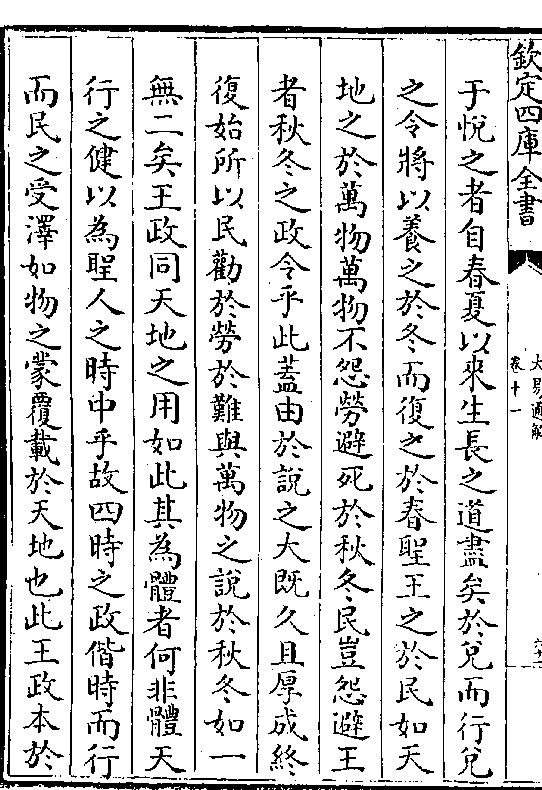 欽定四庫全書
大易通解
卷十一
于悅之者自春夏以來生長之道盡矣於兌而行兌
之令將以養之於冬而復之於春聖王之於民如天
地之於萬物萬物不怨勞避死於秋冬民豈怨避王
者秋冬之政令乎此蓋由於說之大既久且厚成終
復始所以民勸於勞於難與萬物之說於秋冬如一
無二矣王政同天地之用如此其為體者何非體天
行之健以為聖人之時中乎故四時之政偕時而行
而民之受澤如物之蒙覆載於天地也此王政本於